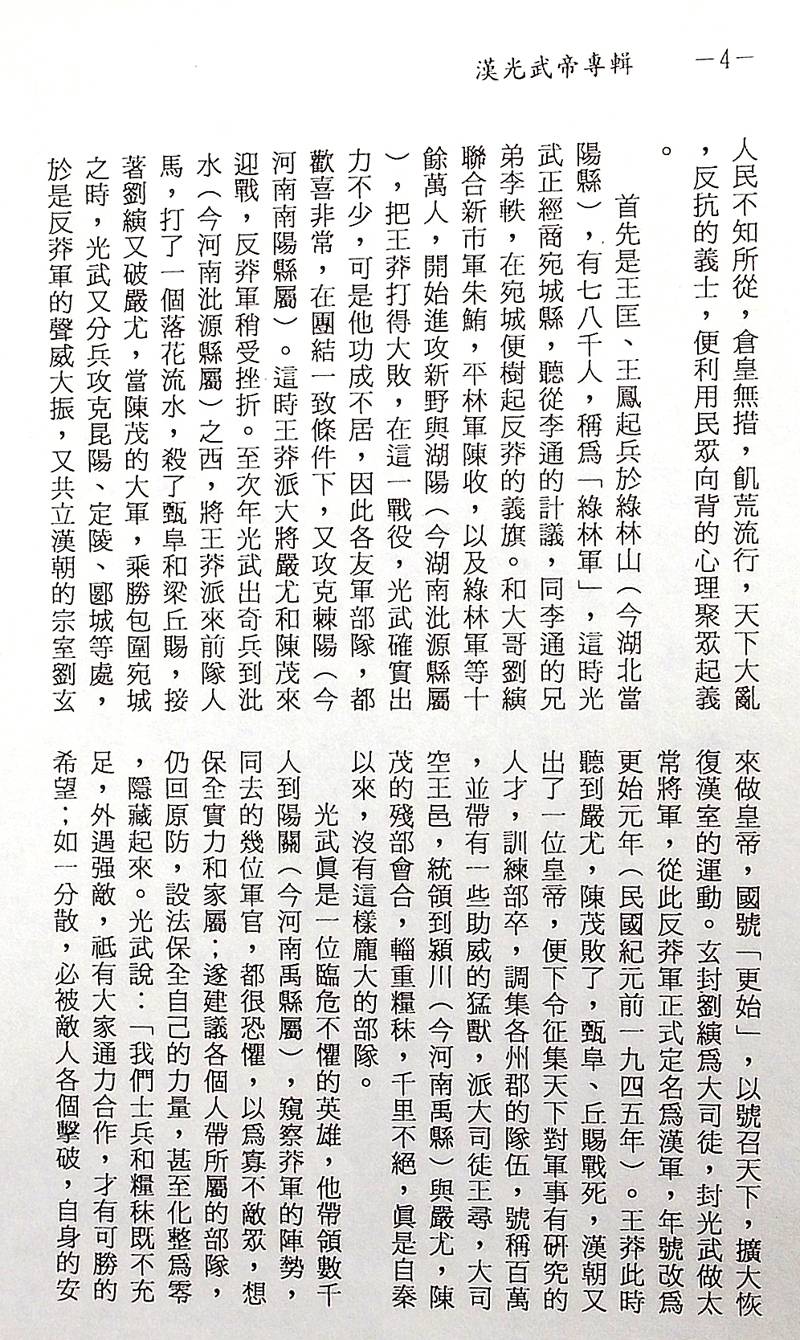 漢光武帝專輯 —4—
人民不知所從，倉皇無措，飢荒流行，天下大亂
，反抗的義士，便利用民眾向背的心理聚眾起義
。
首先是王匡、王鳳起兵於綠林山（今湖北當
陽縣），有七八千人，稱爲「綠林軍」，這時光
武正經商宛城縣，聽從李通的計議，同李通的兄
弟李軼，在宛城便樹起反莽的義旗。和大哥劉縯
聯合新市軍朱鮪，平林軍陳收，以及綠林軍等十
餘萬人，開始進攻新野與湖陽（今湖南沘源縣屬
），把王莽打得大敗，在這一戰役，光武確實出
力不少，可是他功成不居，因此各友軍部隊，都
歡喜非常，在團結一致條件下，又攻克棘陽（今
河南南陽縣屬）。這時王莽派大將嚴尤和陳茂來
迎戰，反莽軍稍受挫折。至次年光武出奇兵到沘
水（今河南沘源縣屬）之西，將王莽派來前隊人
馬，打了一個落花流水，殺了甄阜和梁丘賜，接
著劉縯又破嚴尤，當陳茂的大軍，乘勝包圍宛城
之時，光武又分兵攻克昆陽、定陵、郾城等處，
於是反莽軍的聲威大振，又共立漢朝的宗室劉玄
來做皇帝，國號「更始」，以號召天下，擴大恢
復漢室的運動。玄封劉縯爲大司徒，封光武做太
常將軍，從此反莽軍正式定名爲漢軍，年號改爲
更始元年（民國紀元前一九四五年）。王莽此時
聽到嚴尤，陳茂敗了，甄阜、丘賜戰死，漢朝又
出了一位皇帝，便下令征集天下對軍事有硏究的
人才，訓練部卒，調集各州郡的隊伍，號稱百萬
，並帶有一些助威的猛獸，派大司徒王尋，大司
空王邑，統領到潁川（今河南禹縣）與嚴尤，陳
茂的殘部會合，輜重糧秣，千里不絕，眞是自秦
以來，沒有這樣龐大的部隊。
光武眞是一位臨危不懼的英雄，他帶領數千
人到陽關（今河南禹縣屬），窺察莽軍的陣勢，
同去的幾位軍官，都很恐懼，以爲寡不敵眾，想
保全實力和家屬；遂建議各個人帶所屬的部隊，
仍回原防，設法保全自己的力量，甚至化整爲零
，隱藏起來。光武說：「我們士兵和糧秣既不充
足，外遇强敵，祗有大家通力合作，才有可勝的
希望；如一分散，必被敵人各個擊破，自身的安